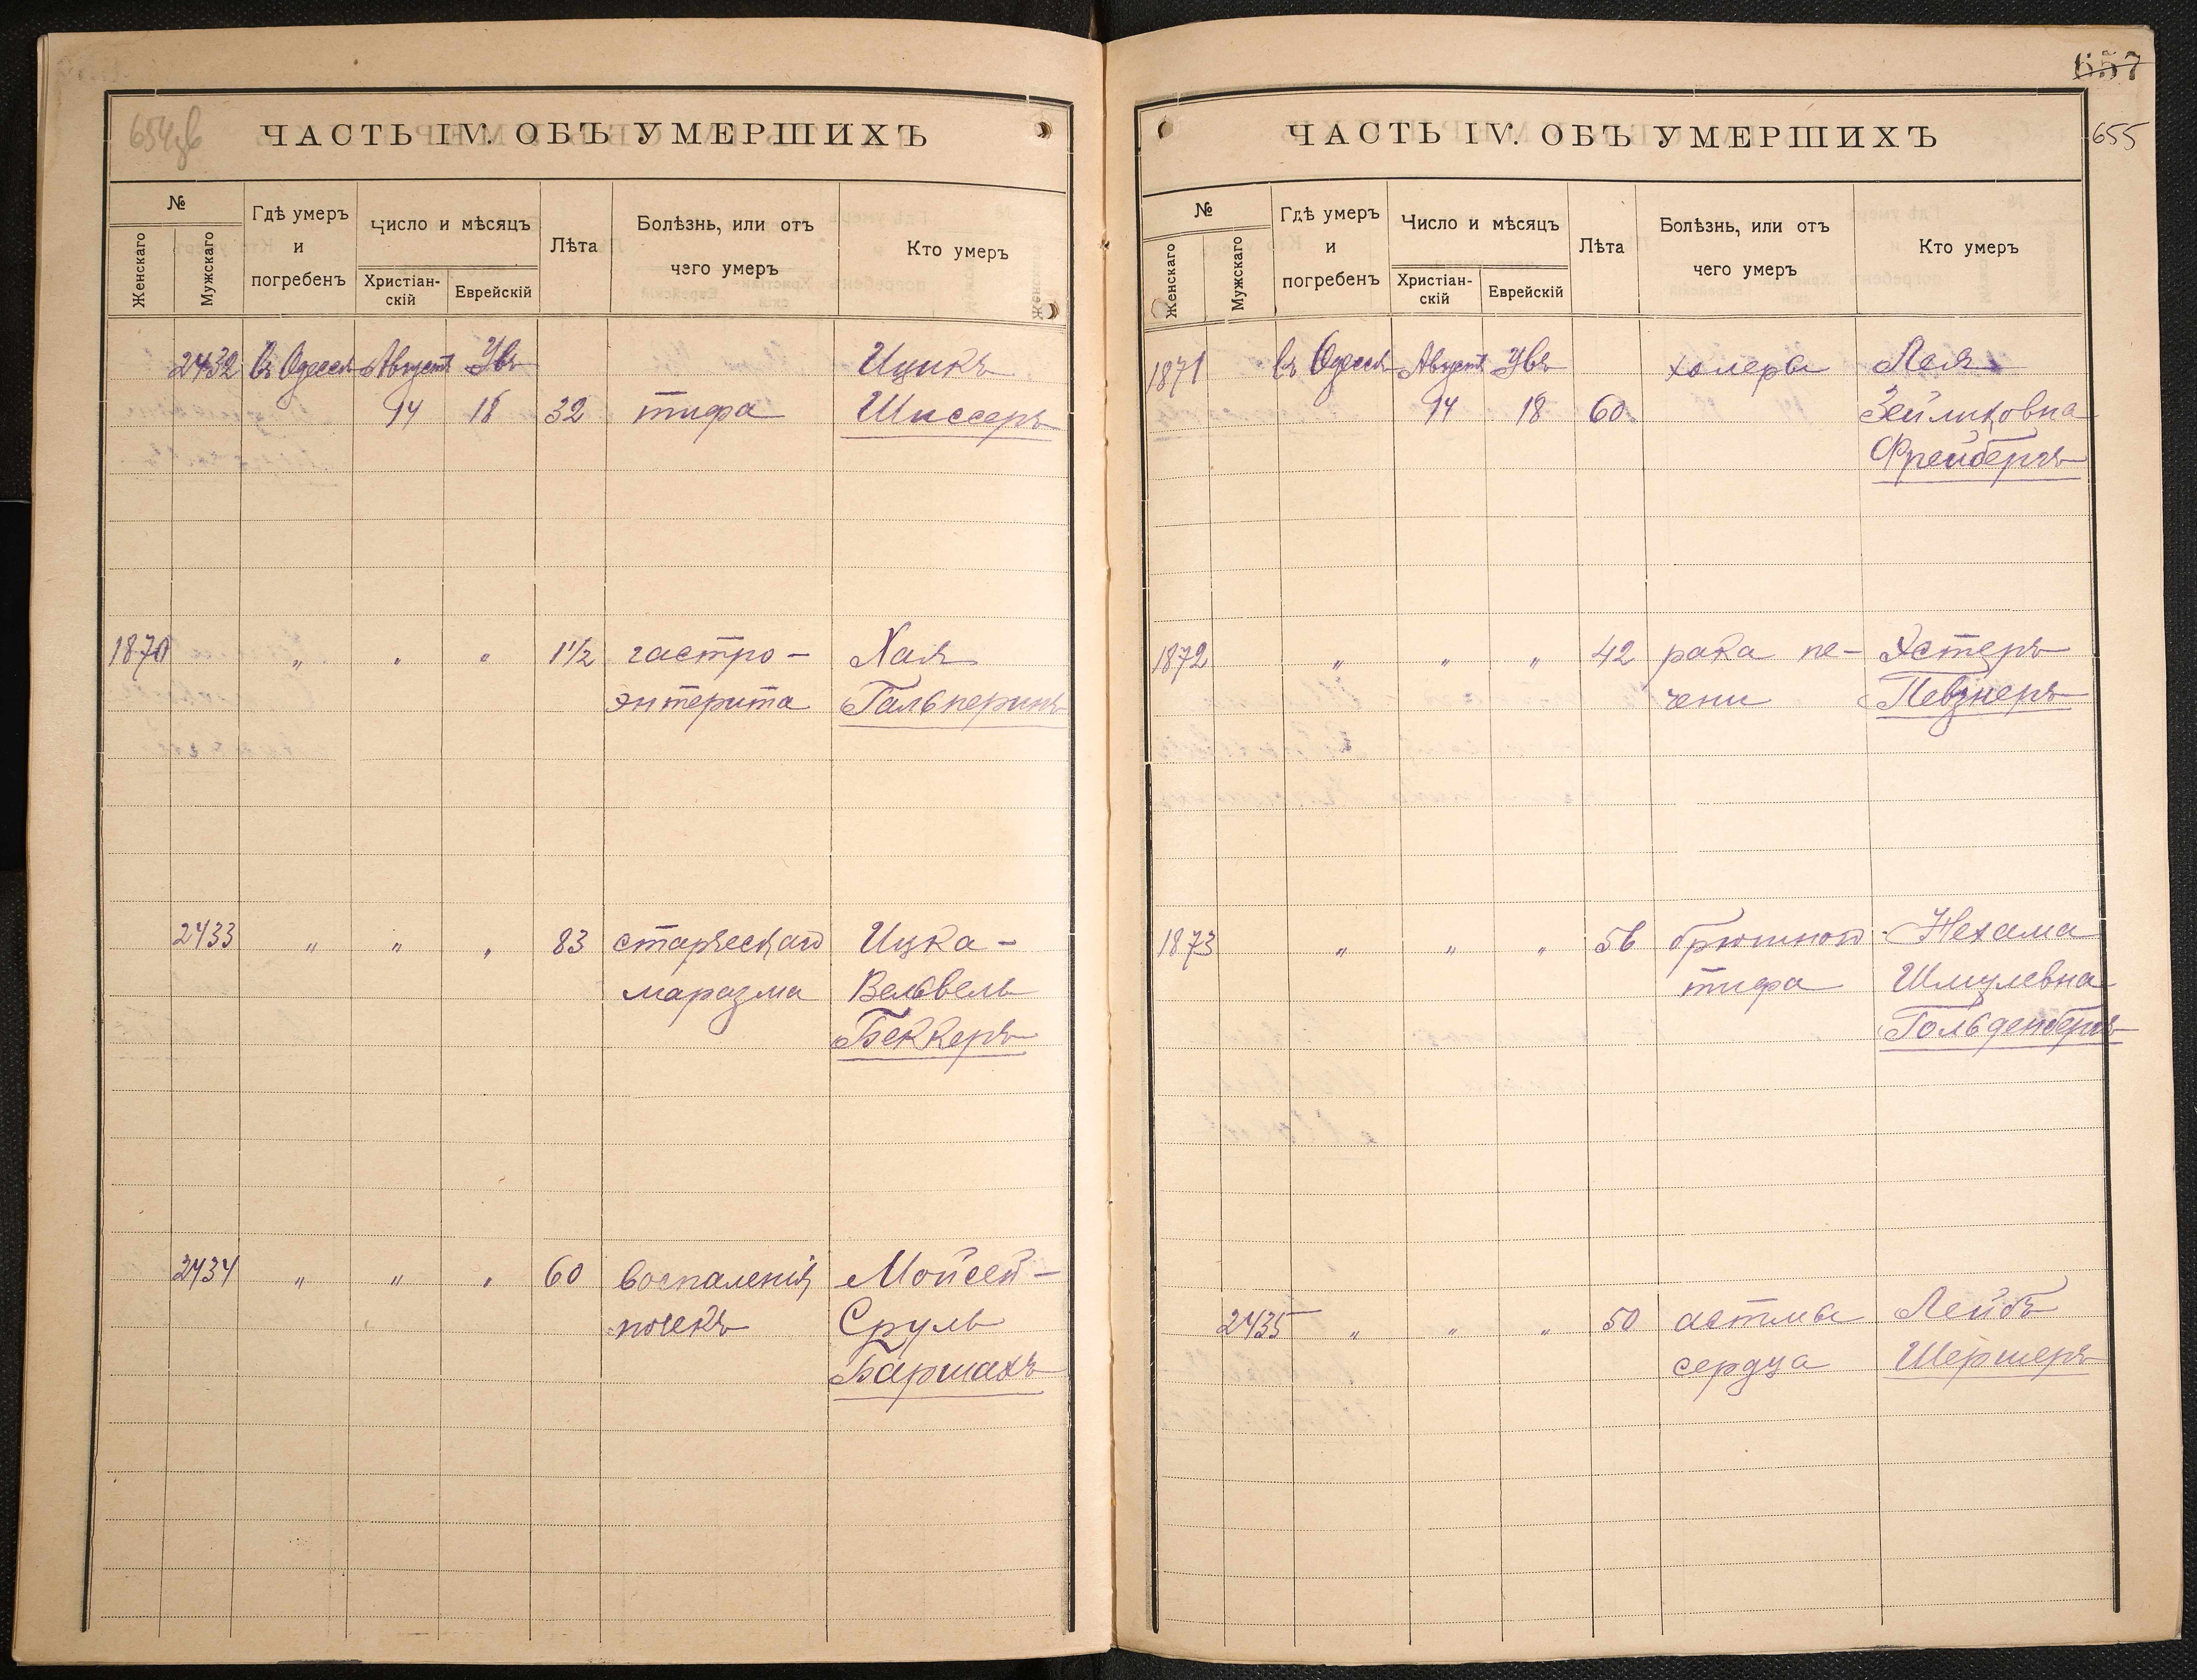 654об
ЧАСТЬ IV. ОБЪ УМЕРШИХЪ
№
Женскаго
Мужскаго
Гдѣ умеръ
и
погребенъ
Число и мѣсяцъ
Христіан-
скій
Еврейскій
Лѣта
Болѣзнь, или отъ
чего умеръ
Кто умеръ
2432 Въ Одессѣ Августъ Увъ Ицикъ
14 18 32 тифа Шиссеръ
1870 " " " 1½ гастро- Хая
энтерита Гальперинъ
2433 " " " 83 старческаго Ицка-
маразма Вельвель
Беккеръ
2434 " " " 60 воспаленія Мойсей-
почекъ Сруль
Баршахъ
657
655
ЧАСТЬ IV. ОБЪ УМЕРШИХЪ
№
Женскаго
Мужскаго
Гдѣ умеръ
и
погребенъ
Число и мѣсяцъ
Христіан-
скій
Еврейскій
Лѣта
Болѣзнь, или отъ
чего умеръ
Кто умеръ
1871 Въ Одессѣ Августъ Увъ холеры Лея
14 18 60 Зейликовна
Фрейбергъ
1872 " " " 42 рака пе- Эстеръ
чени Певзнеръ
1873 " " " 56 брюшного Нехама
тифа Шмулевна
Гольденбергъ
2435 " " " 50 астмы Лейбъ
сердца Шермеръ